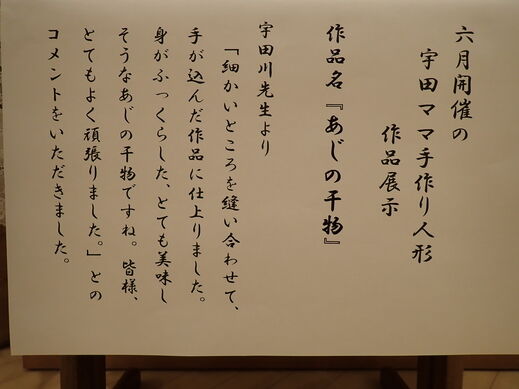 六月開催の
宇田ママ手作り人形
作品展示
作品名『あじの干物』
宇田川先生より
「細かいところを縫い合わせて、
手が込んだ作品に仕上りました。
身がふっくらした、とても美味し
そうなあじの干物ですね。皆様、
とてもよく頑張りました。」との
コメントをいただきました。